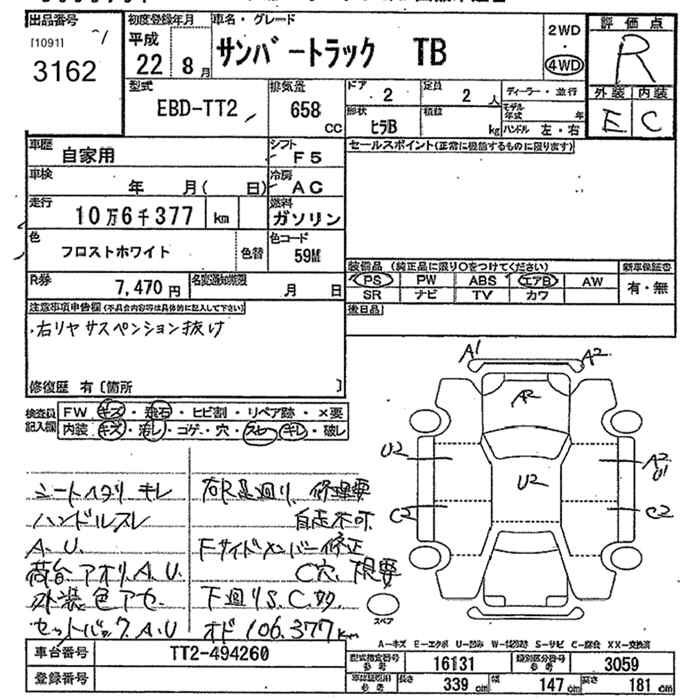 出品番号
[1091]
3162
初度登録年月
平成
22 8月
車名・グレード
サンバートラック TB
2WD
・
4WD
評価点
R
外装 内装
E C
型式
EBD-TT2
排気量
658
CC
ドア
2
定員
2 人
形状
ヒラB
積載
kg
ディーラー・並行
モデル年式 年
ハンドル 左・右
車歴
自家用
シフト
F5
車検
年 月( 日)
冷房
AC
走行
10万6千377 km
燃料
ガソリン
色
フロストホワイト
色替
色コード
59M
R券
7,470円
名変通知期限
月 日
セールスポイント(正常に機能するものに限ります)
装備品 (純正品に限り○をつけてください)
PS PW ABS エアB AW
SR ナビ TV カワ
新車保証書
有・無
後日品
注意事項申告欄(不具合内容等は具体的に記入して下さい)
・右リヤサスペンション抜け
修復歴 有〔箇所 〕
検査員
記入欄
FW キズ・飛石・ヒビ割・リペア跡・×要
内装 キズ・汚レ・コゲ・穴・スレ・キレ・破レ
シートヘタリ キレ
ハンドルスレ
A.U.
荷台アオリA.U.
外装色アセ
セットバックA.U
右R足廻り修理要
自走不可
Fサイドメンバー修正
C穴、現要
下廻りS.C.多
オド106.377km
A1 A2
A2
U2
U2
A2
U1
C2
C2
スペア
A-キズ E-エクボ U-凹み W-補修跡 S-サビ C-腐食 XX-交換済
車台番号
TT2-494260
登録番号
型式指定番号
参考
16131
類別区分番号
参考
3059
車体証記用
参考
長さ 339 cm
幅 147 cm
高さ 181 cm